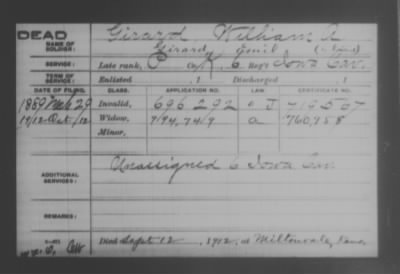 DEAD
NAME OF SOLDIER:
Girard, William A
Girard, Louis (alias)
SERVICE:
Late rank, P Co. K, 6 Reg't Iowa Cav.
TERM OF SERVICE:
Enlisted , 1 Discharged , 1
DATE OF FILING. CLASS. APPLICATION NO. LAW. CERTIFICATE NO.
1889 29 Invalid, 696292 J 719567
1912 Oct 12 Widow, 994,749 a 760,958
Minor,
ADDITIONAL SERVICES:
Unassigned 6 Iowa Cav
REMARKS:
Died Sept 12, 1912, at Miltonvale, Kans.